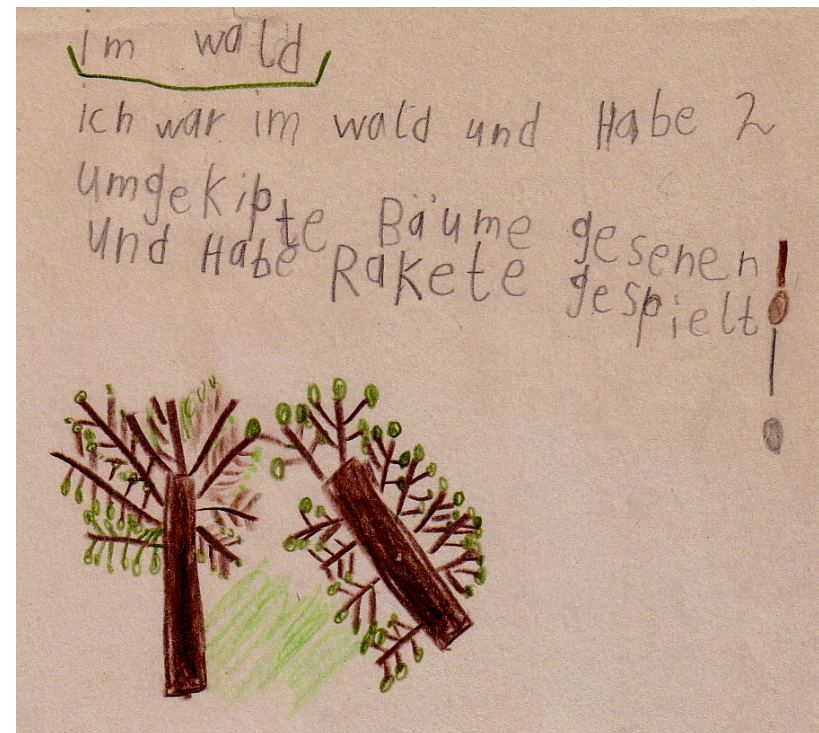 im wald
ich war im wald und Habe 2
umgekipte Bäume gesehen!
und Habe Rakete gespielt!